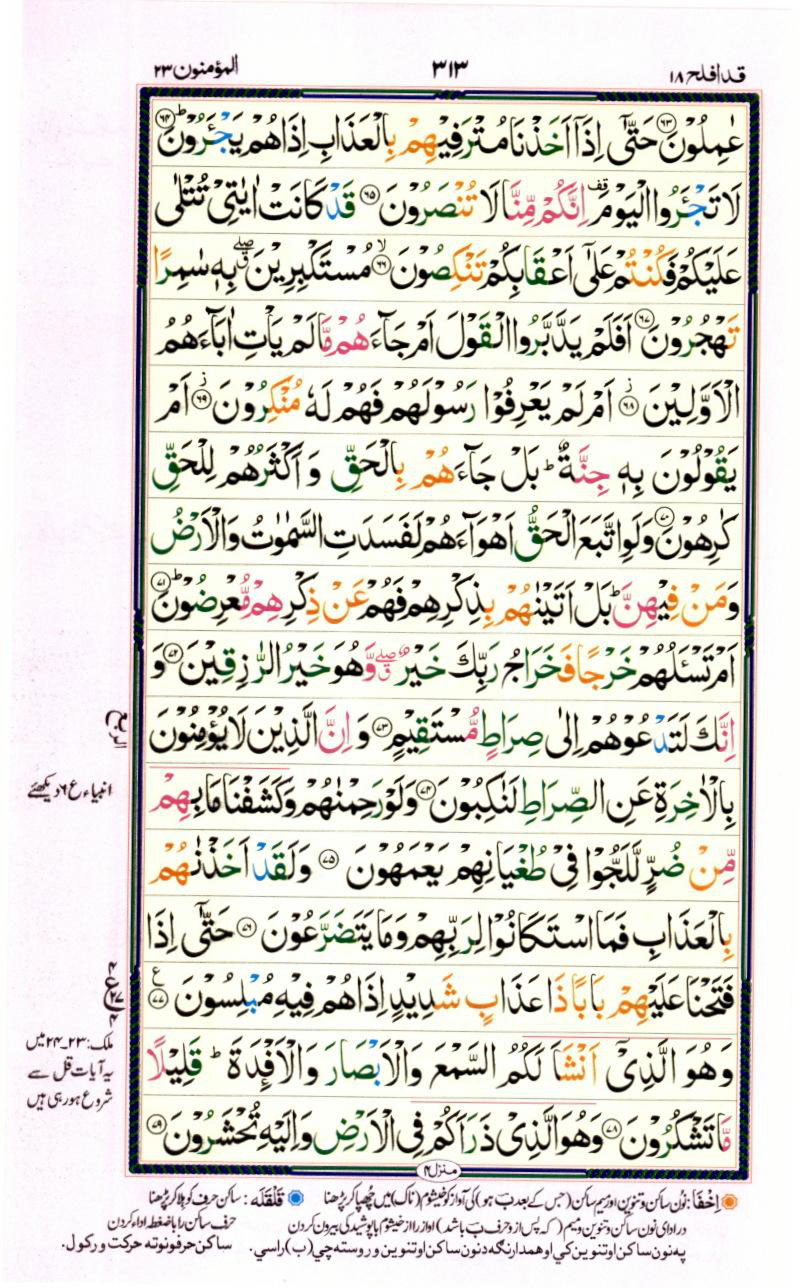 قد افلح ۱۸ ۳۱۳ المؤمنون ۲۳
عٰمِلُوْنَ ﴿۶۳﴾ حَتّٰۤى اِذَاۤ اَخَذْنَا مُتْرَفِيْهِمْ بِالْعَذَابِ اِذَا هُمْ يَجْـَٔرُوْنَ ؕ﴿۶۴﴾
لَا تَجْـَٔرُوا الْيَوْمَ قف اِنَّكُمْ مِّنَّا لَا تُنْصَرُوْنَ ﴿۶۵﴾ قَدْ كَانَتْ اٰيٰتِىْ تُتْلٰى
عَلَيْكُمْ فَكُنْتُمْ عَلٰٓى اَعْقَابِكُمْ تَنْكِصُوْنَ ۙ﴿۶۶﴾ مُسْتَكْبِرِيْنَ ۖۗ بِهٖ سٰمِرًا
تَهْجُرُوْنَ ﴿۶۷﴾ اَفَلَمْ يَدَّبَّرُوا الْقَوْلَ اَمْ جَآءَهُمْ مَّا لَمْ يَاْتِ اٰبَآءَهُمُ
الْاَوَّلِيْنَ ؗ﴿۶۸﴾ اَمْ لَمْ يَعْرِفُوْا رَسُوْلَهُمْ فَهُمْ لَهٗ مُنْكِرُوْنَ ؗ﴿۶۹﴾ اَمْ
يَقُوْلُوْنَ بِهٖ جِنَّةٌ ؕ بَلْ جَآءَهُمْ بِالْحَقِّ وَ اَكْثَرُهُمْ لِلْحَقِّ
كٰرِهُوْنَ ﴿۷۰﴾ وَلَوِ اتَّبَعَ الْحَقُّ اَهْوَآءَهُمْ لَفَسَدَتِ السَّمٰوٰتُ وَالْاَرْضُ
وَمَنْ فِيْهِنَّ ؕ بَلْ اَتَيْنٰهُمْ بِذِكْرِهِمْ فَهُمْ عَنْ ذِكْرِهِمْ مُّعْرِضُوْنَ ؕ﴿۷۱﴾
اَمْ تَسْـَٔلُهُمْ خَرْجًا فَخَرَاجُ رَبِّكَ خَيْرٌ ۖۗ وَّهُوَ خَيْرُ الرّٰزِقِيْنَ ﴿۷۲﴾ وَ
اِنَّكَ لَتَدْعُوْهُمْ اِلٰى صِرَاطٍ مُّسْتَقِيْمٍ ﴿۷۳﴾ وَ اِنَّ الَّذِيْنَ لَا يُؤْمِنُوْنَ
بِالْاٰخِرَةِ عَنِ الصِّرَاطِ لَنٰكِبُوْنَ ﴿۷۴﴾ وَلَوْ رَحِمْنٰهُمْ وَكَشَفْنَا مَا بِهِمْ
مِّنْ ضُرٍّ لَّلَجُّوْا فِىْ طُغْيَانِهِمْ يَعْمَهُوْنَ ﴿۷۵﴾ وَلَقَدْ اَخَذْنٰهُمْ
بِالْعَذَابِ فَمَا اسْتَكَانُوْا لِرَبِّهِمْ وَمَا يَتَضَرَّعُوْنَ ﴿۷۶﴾ حَتّٰۤى اِذَا
فَتَحْنَا عَلَيْهِمْ بَابًا ذَا عَذَابٍ شَدِيْدٍ اِذَا هُمْ فِيْهِ مُبْلِسُوْنَ ﴿۷۷﴾ ع
وَهُوَ الَّذِىْۤ اَنْشَاَ لَكُمُ السَّمْعَ وَالْاَبْصَارَ وَالْاَفْـِٕدَةَ ؕ قَلِيْلًا
مَّا تَشْكُرُوْنَ ﴿۷۸﴾ وَهُوَ الَّذِىْ ذَرَاَكُمْ فِى الْاَرْضِ وَاِلَيْهِ تُحْشَرُوْنَ ﴿۷۹﴾
منزل ۴
الربع
انبیاء ع ۶ دیکھئے
۴ ع ۲۷ ۴
ملک: ۲۳-۲۴ میں
یہ آیات قل سے
شروع ہو رہی ہیں
اِخفَا: نُون ساکن و تنوین اور میم ساکن (جس کے بعد بَ ہو) کی آواز کو خیشوم (ناک) میں چُھپا کر پڑھنا قَلقَلَہ: ساکن حرف کو ہِلا کر پڑھنا
در ادای نون ساکن و تنوین و میم (که پس از و حرف بَ باشد) اواز را از خیشوم با پوشیدگی بیرون کردن حرف ساکن را با ضغطه اداء کردن
په نون ساکن او تنوین کي او همدارنګه د نون ساکن او تنوین و روسته چي (ب) راسي. ساکن حرفونو ته حرکت ورکول.